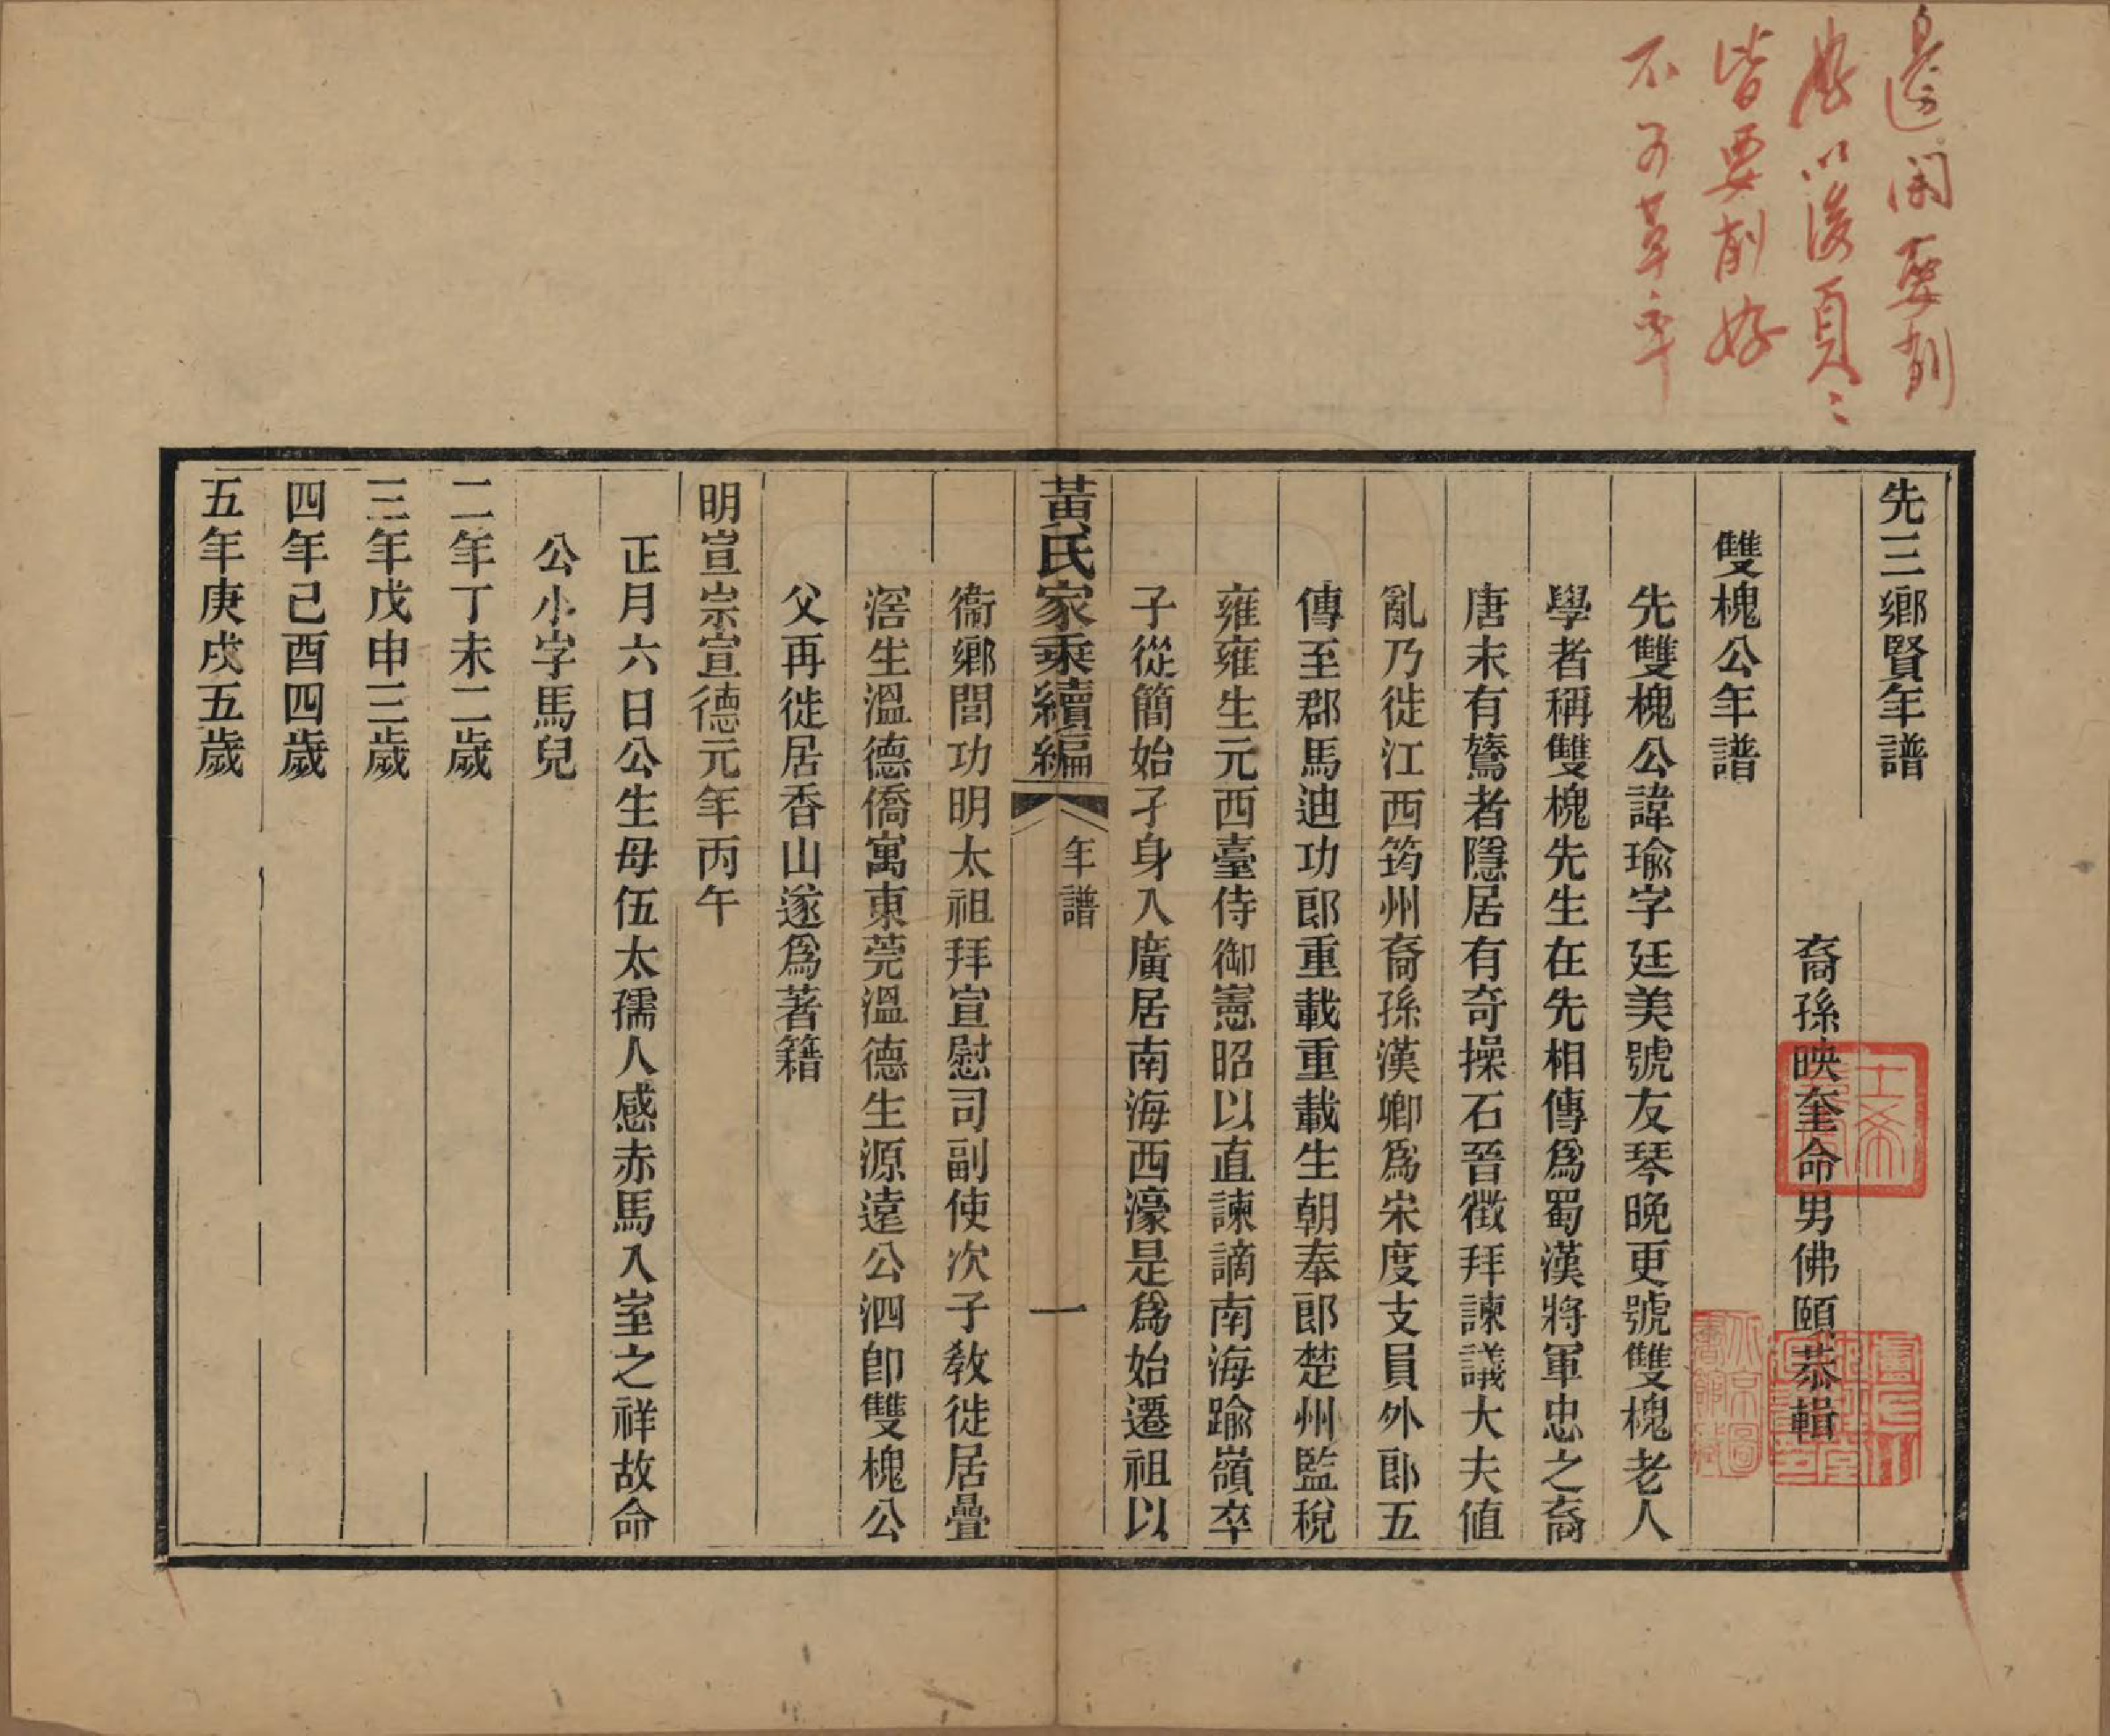 邊闌要刻
好以後頁〻
皆要刻好
不可草率
先三鄉賢年譜
裔孫映奎命男佛頤恭輯
雙槐公年譜
先雙槐公諱瑜字廷美號友琴晚更號雙槐老人
學者稱雙槐先生在先相傳爲蜀漢將軍忠之裔
唐末有鷟者隱居有奇操石晉徵拜諫議大夫値
亂乃徙江西筠州裔孫漢卿爲宋度支員外郎五
傳至郡馬迪功郎重載重載生朝奉郎楚州監稅
雍雍生元西臺侍御憲昭以直諫謫南海踰嶺卒
子從簡始孑身入廣居南海西濠是爲始遷祖以
黃氏家乘續編 年譜 一
衞鄉閭功明太祖拜宣慰司副使次子敎徙居疊
滘生溫德僑寓東莞溫德生源遠公泗卽雙槐公
父再徙居香山遂爲著籍
明宣宗宣德元年丙午
正月六日公生母伍太孺人感赤馬入室之祥故命
公小字馬兒
二年丁未二歲
三年戊申三歲
四年己酉四歲
五年庚戌五歲